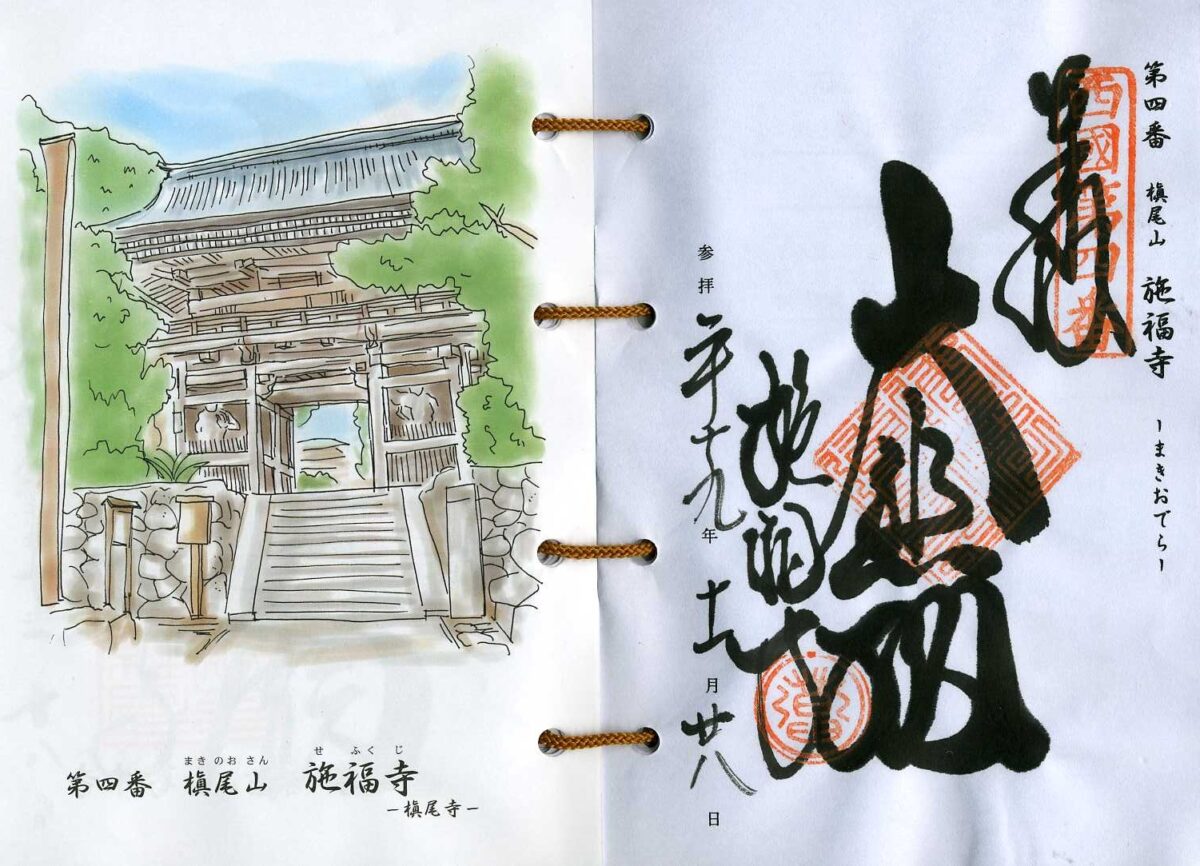 まきのおさん せふくじ
第四番 槇尾山 施福寺
−槇尾寺−
第四番 槇尾山 施福寺 −まきおでら−
西國第四番
奉拝
大悲閣
施福寺
参拝 十九年 十一月 廿八日